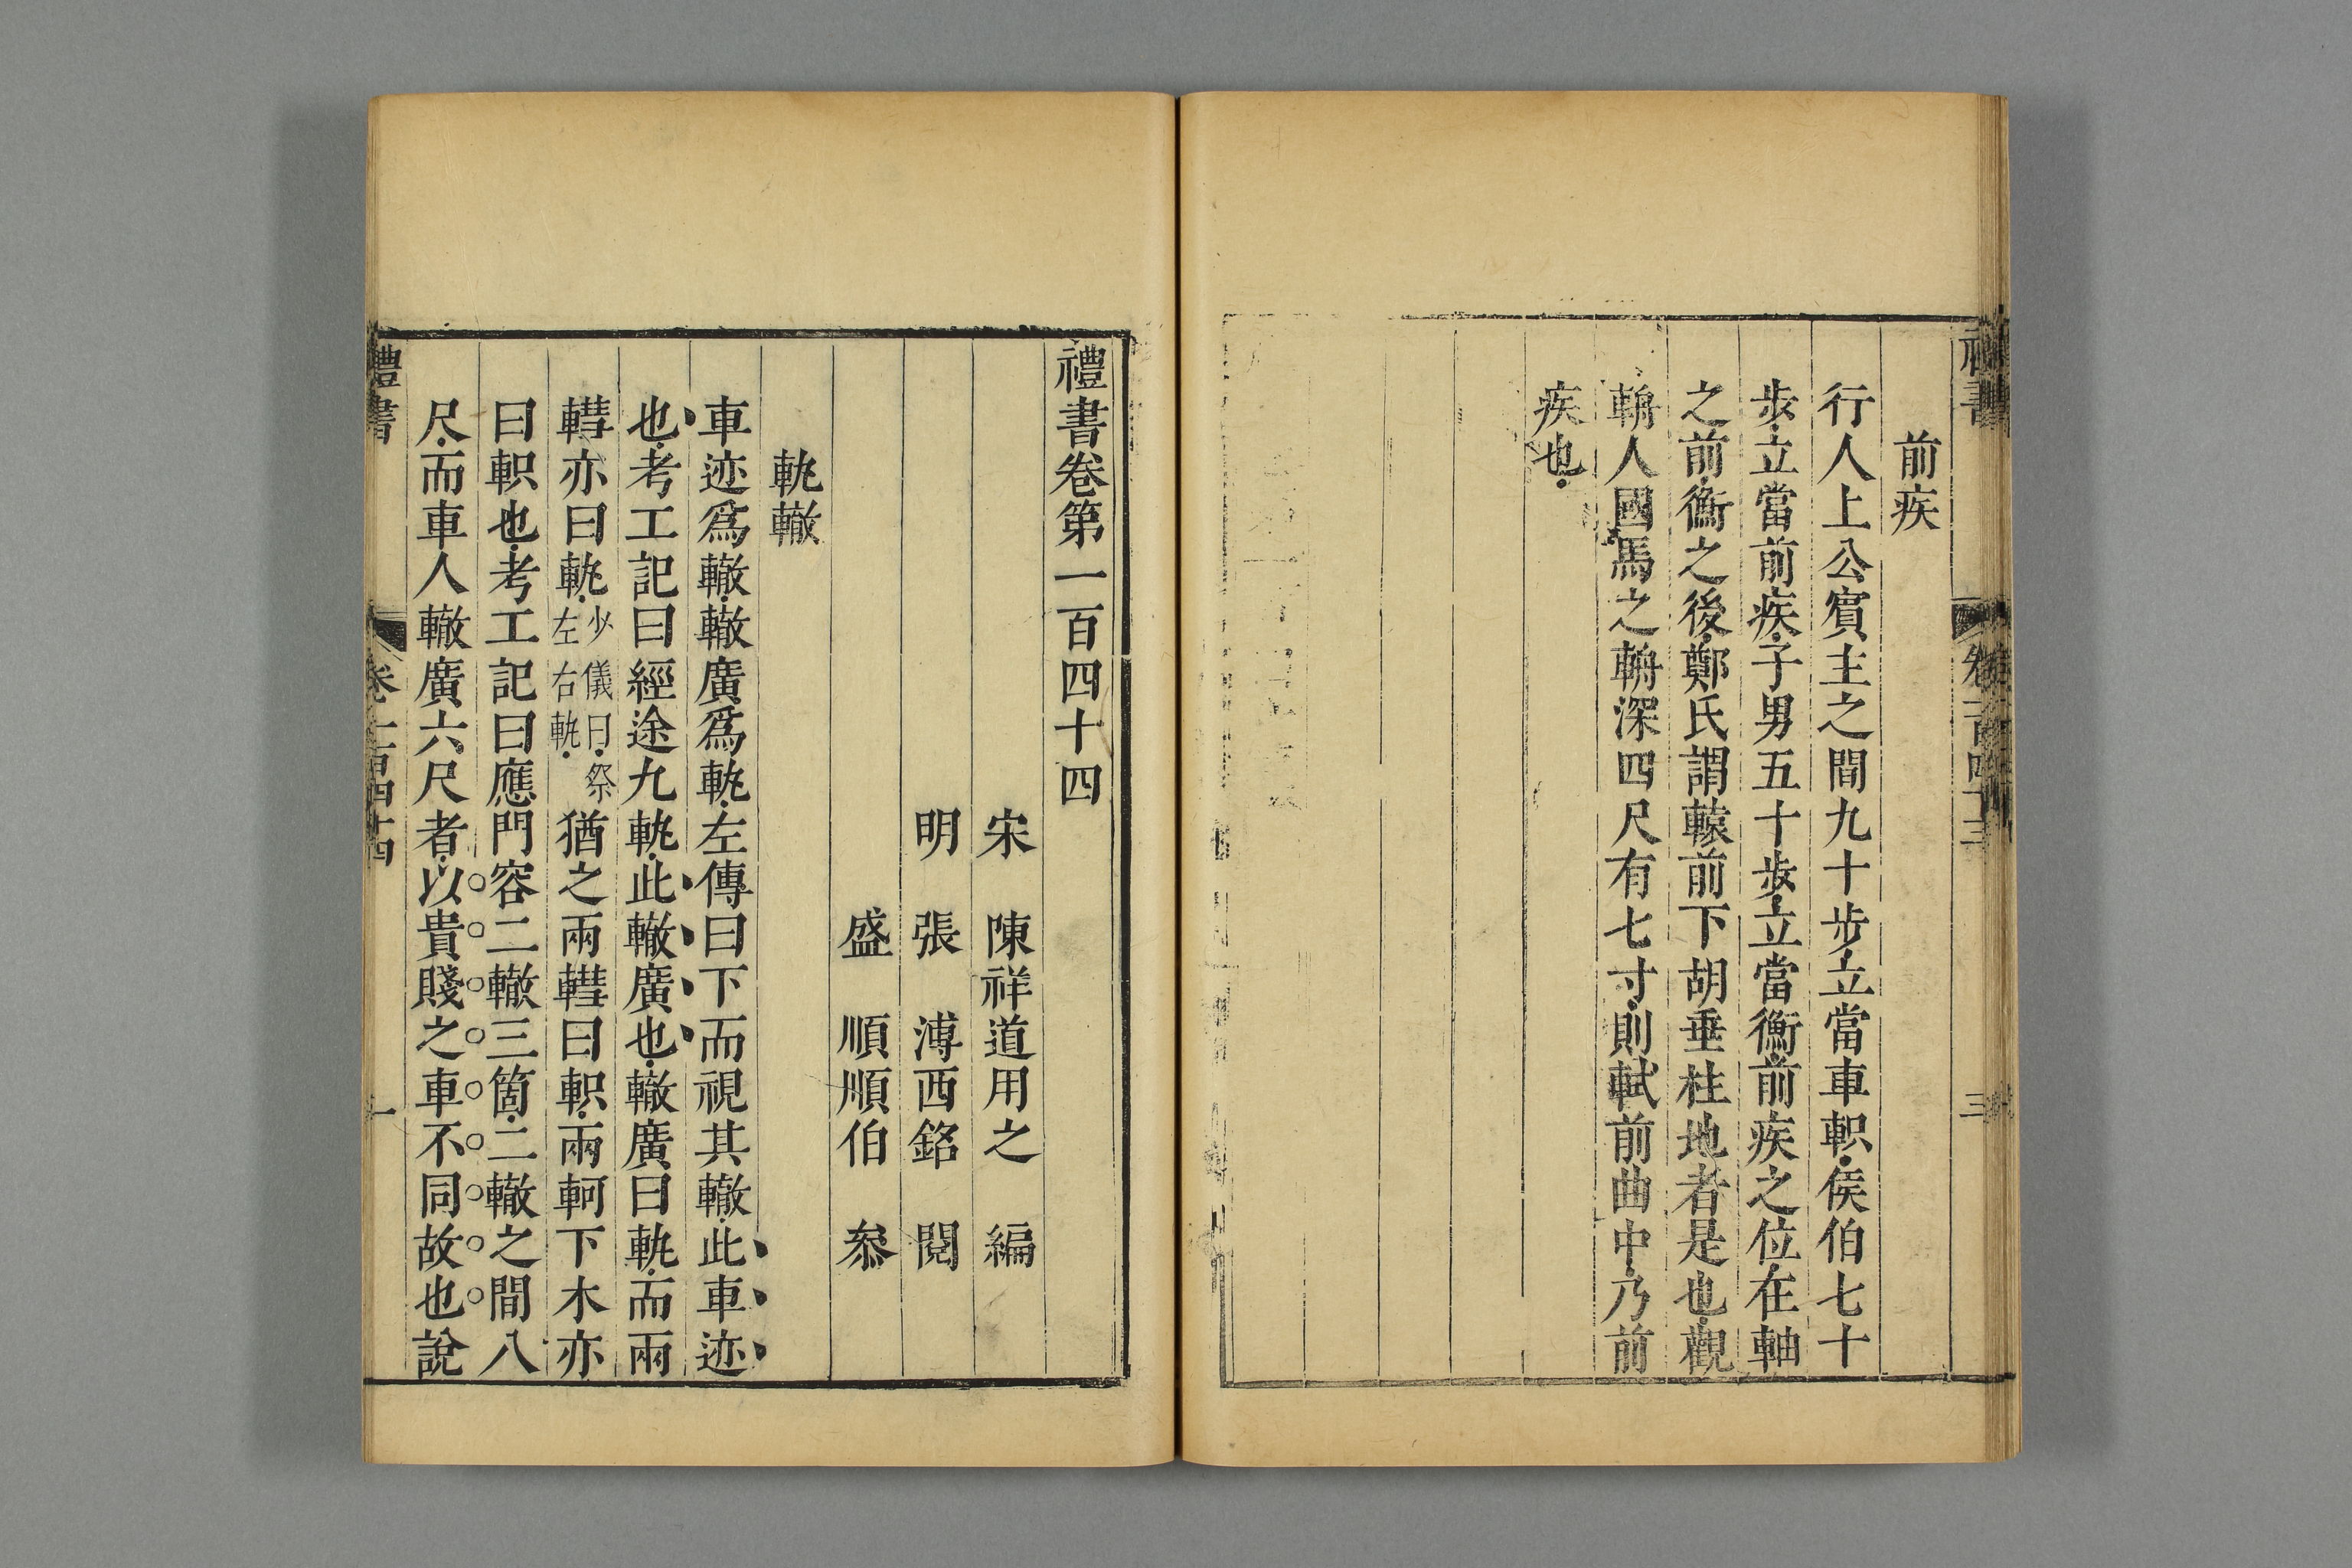 禮書
卷一百四十三
三
前疾
行人上公賓主之間九十步立當車軹侯伯七十
步立當前疾子男五十步立當衡前疾之位在軸
之前衡之後鄭氏謂轅前下胡垂柱地者是也觀
輈人國馬之輈深四尺有七寸則軾前曲中乃前
疾也
禮書卷第一百四十四
宋 陳祥道用之 編
明 張 溥西銘 閱
盛 順順伯 叅
軌轍
車迹爲轍轍廣爲軌左傳曰下而視其轍此車迹
也考工記曰經途九軌此轍廣也轍廣曰軌而兩
轊亦曰軌少儀曰祭左右軌猶之兩轊曰軹兩軻下木亦
曰軹也考工記曰應門容二轍三箇二轍之間八
尺而車人轍廣六尺者以貴賤之車不同故也說
禮書
卷一百四十四
一